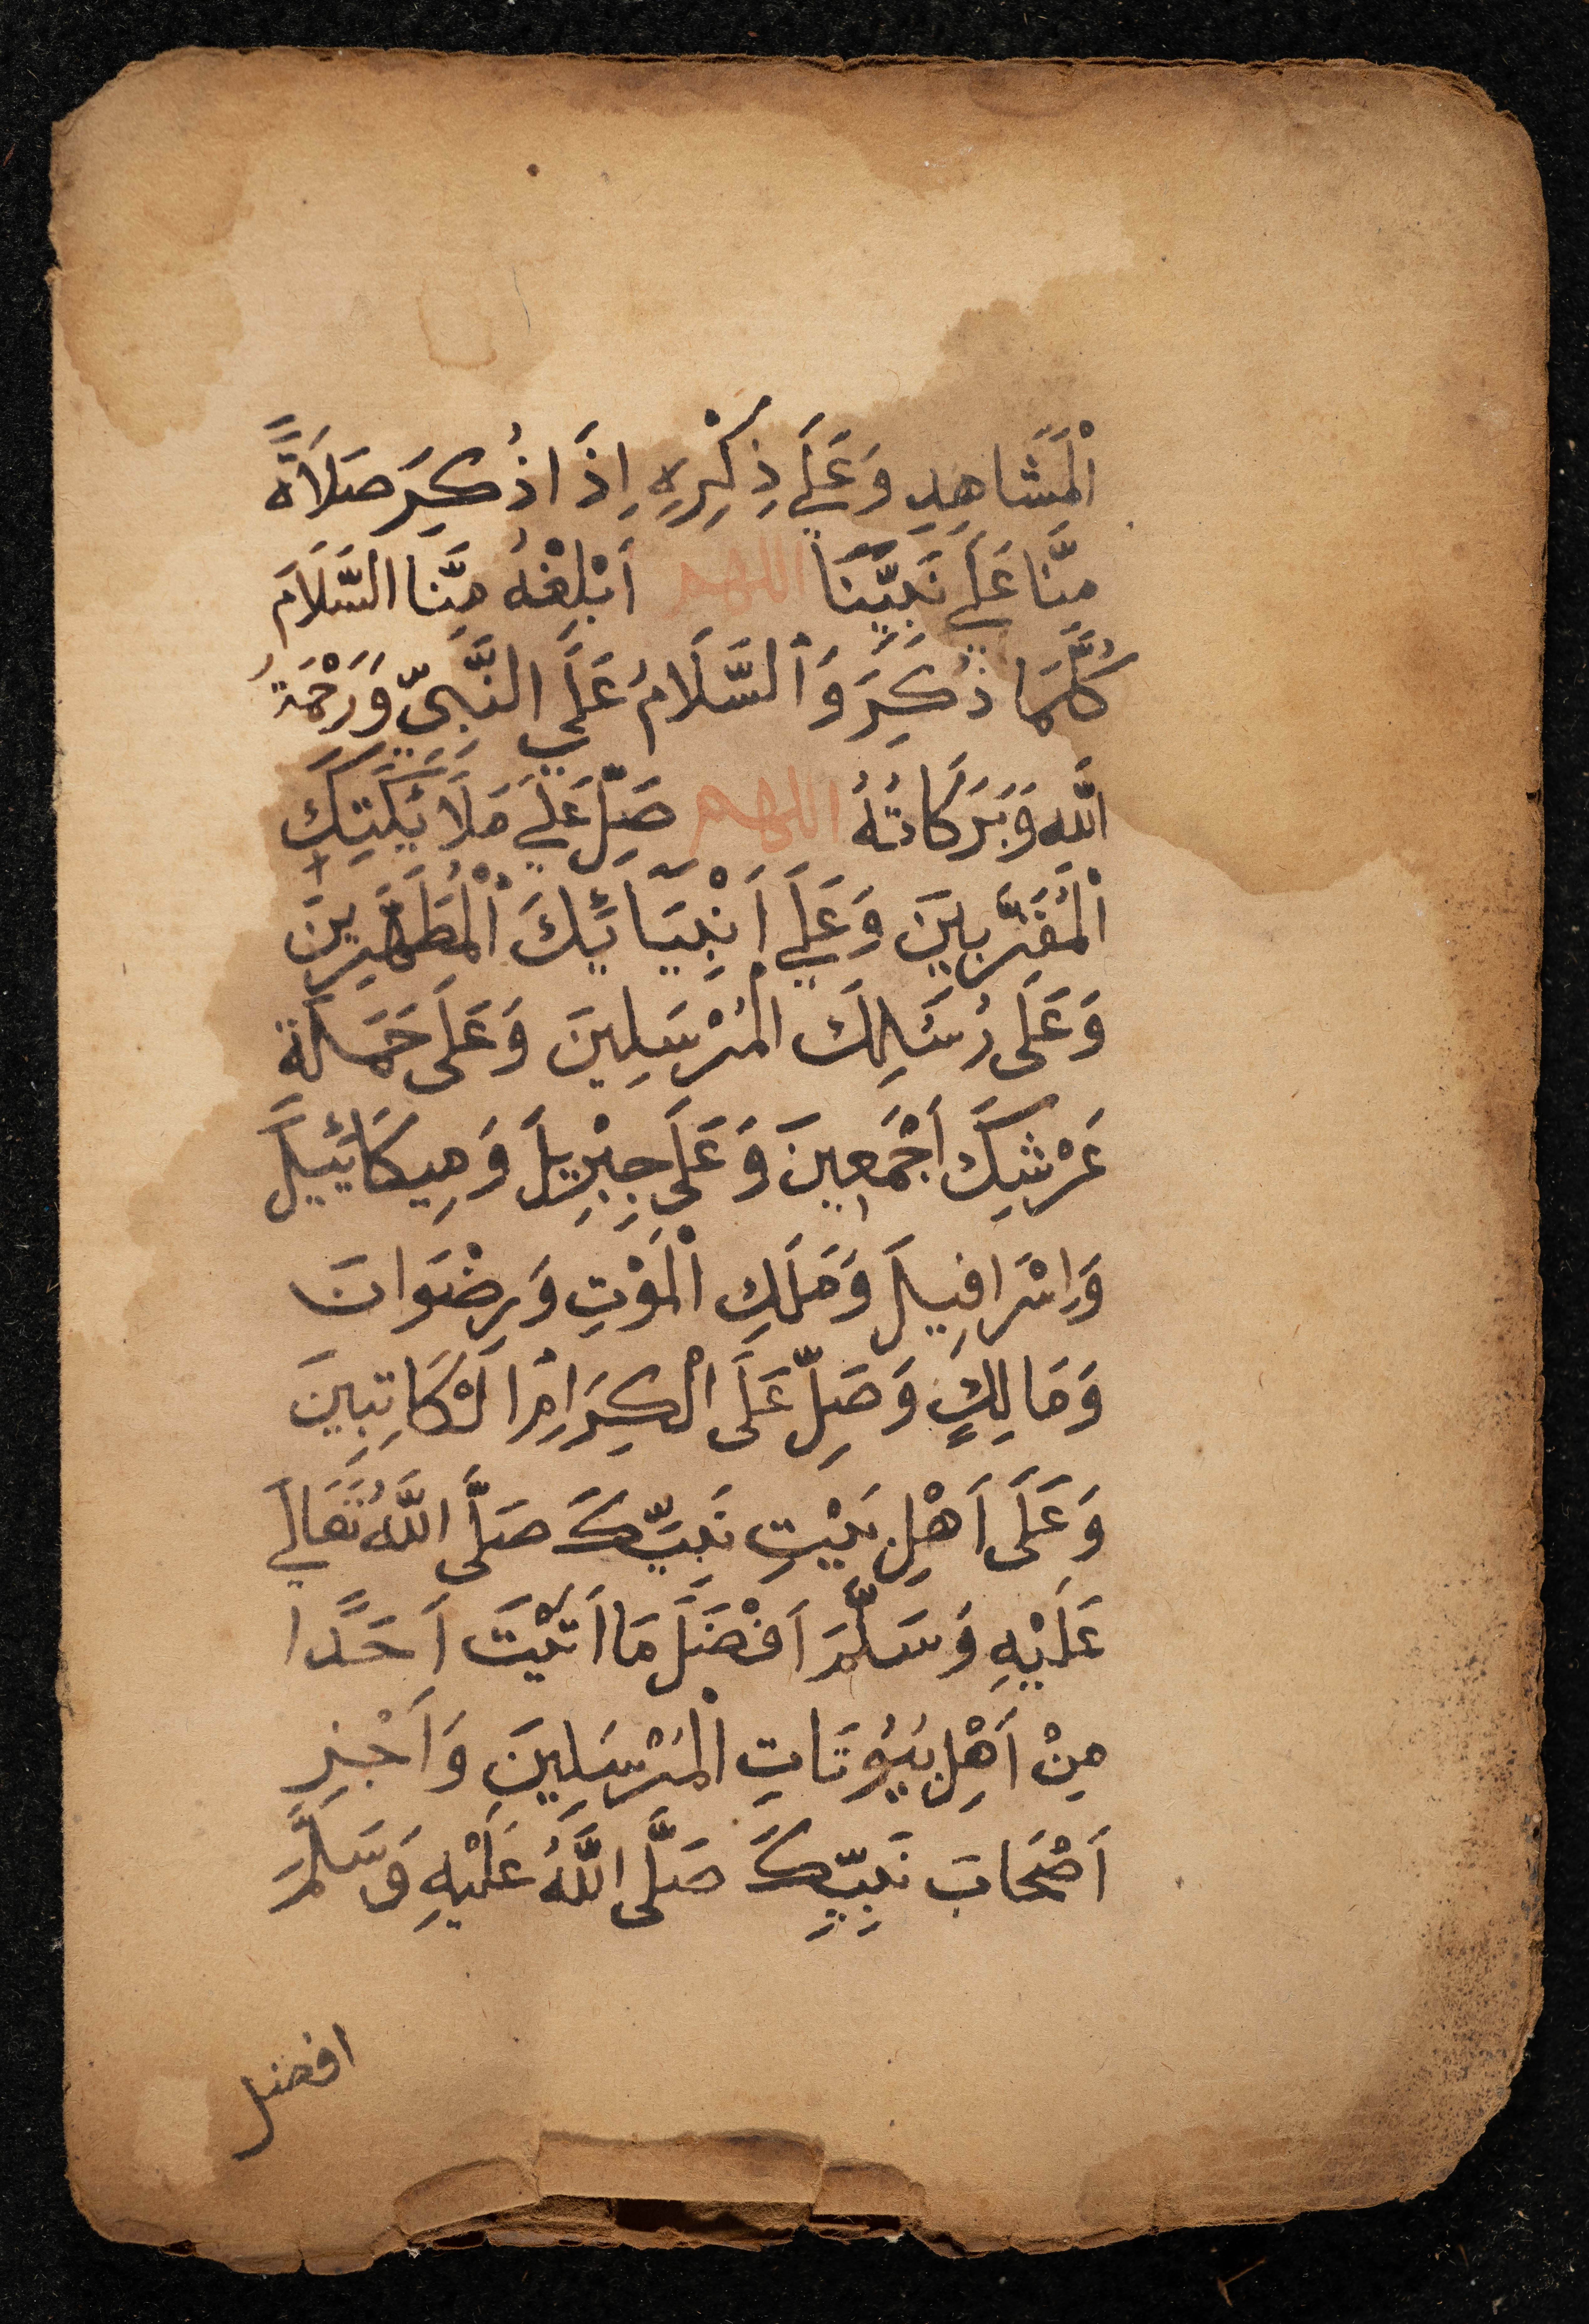 الْمَشَاهِدِ وَعَلَي ذِكْرِهِ اِذَا ذُكِرَ صَلَاةً
مِنَّا عَلَي نَبِيِّنَا اللهم اَبْلِغْهُ مِنَّا السَّلَامَ
كُلَّمَا ذُكِرَ وَالسَّلَامُ عَلَي النَّبِيِّ وَرَحْمَةُ
اللّٰهِ وَبَرَكَاتُهُ اللهم صَلِّ عَلَي مَلَآئِكَتِكَ
الْمُقَرَّبِينَ وَعَلَي اَنْبِيَآئِكَ الْمُطَهَّرِينَ
وَعَلَى رُسُلِكَ الْمُرْسَلِينَ وَعَلَى حَمَلَةِ
عَرْشِكَ اَجْمَعِينَ وَعَلَى جِبْرِيلَ وَمِيكَائِيلَ
وَاِسْرَافِيلَ وَمَلَكِ الْمَوْتِ وَرِضْوَانَ
وَمَالِكٍ وَصَلِّ عَلَى الْكِرَامِ الْكَاتِبِينَ
وَعَلَى اَهْلِ بَيْتِ نَبِيِّكَ صَلَّى اللَّهُ تَعَالَي
عَلَيْهِ وَسَلَّمَ اَفْضَلَ مَا اَتَيْتَ اَحَدًا
مِنْ اَهْلِ بُيُوتَاتِ الْمُرْسَلِينَ وَاَجْزِ
اَصْحَابَ نَبِيِّكَ صَلَّى اللَّهُ عَلَيْهِ وَسَلَّمَ
افضل